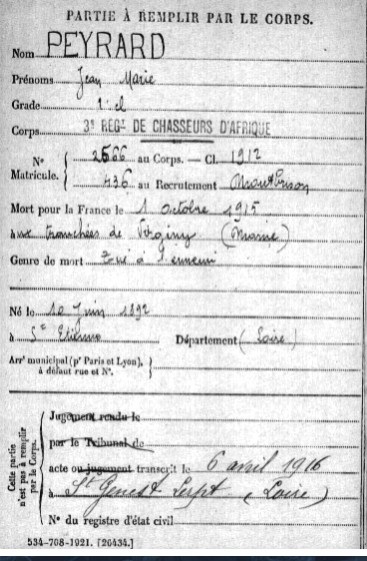 PARTIE À REMPLIR PAR LE CORPS.
Nom PEYRARD
Prénoms Jean Marie
Grade 2e cl
Corps 3e REGt DE CHASSEURS D'AFRIQUE
N° 2566 au Corps. — Cl. 1912
Matricule. 436 au Recrutement Montbrison
Mort pour la France le 1 octobre 1915
aux tranchées de (Marne)
Genre de mort Tué à l'ennemi
Né le 10 Juin 1892
à St Etienne Département (Loire)
Arrt municipal (pr Paris et Lyon),
à défaut rue et N°.
Cette partie
n'est pas à remplir
par le Corps.
Jugement rendu le
par le Tribunal de
acte ou jugement transcrit le 6 avril 1916
à St Genest Lerpt (Loire)
N° du registre d'état civil
534-708-1921. [26434.]